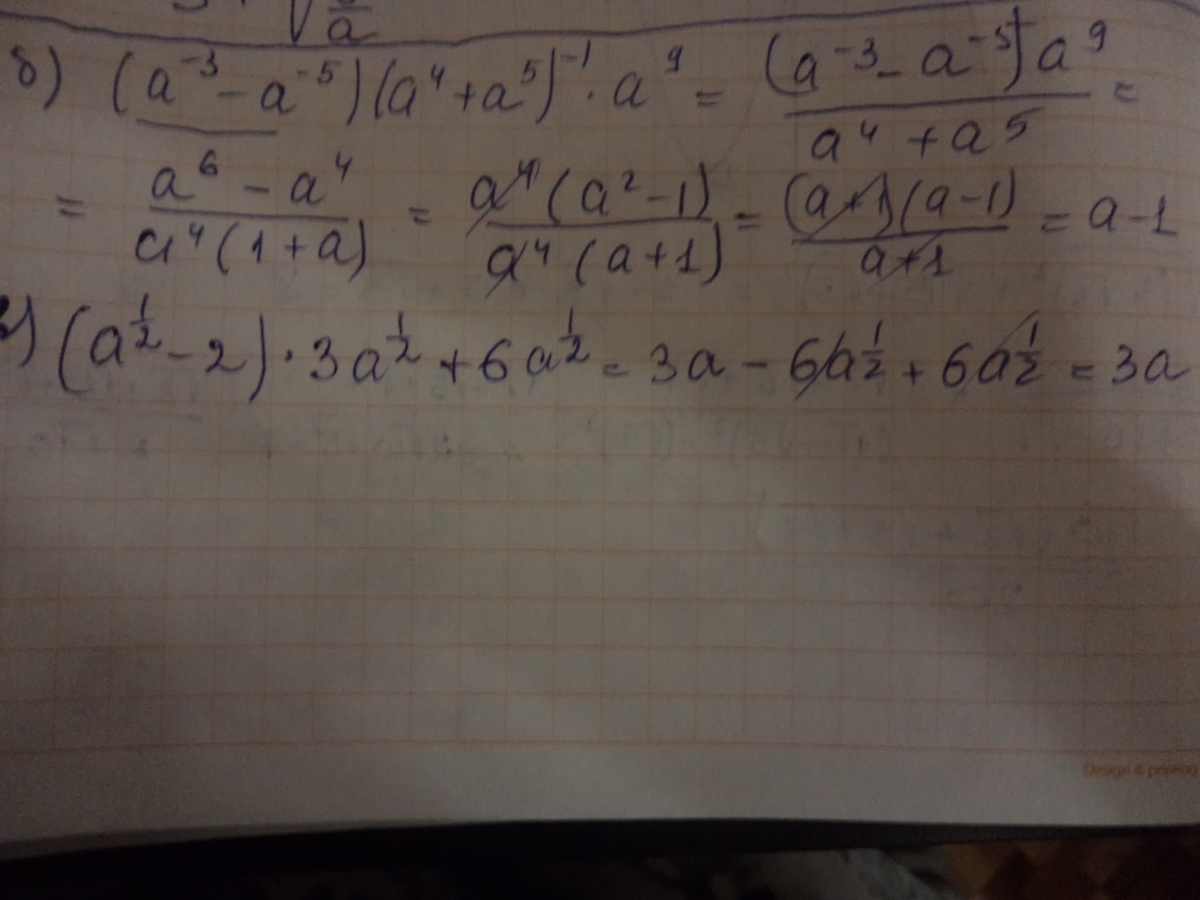 √ a
б) (a⁻³ - a⁻⁵)(a⁴ + a⁵)⁻¹ · a⁹ = (a⁻³ - a⁻⁵)a⁹ / a⁴ + a⁵ =
= a⁶ - a⁴ / a⁴(1 + a) = a⁴(a² - 1) / a⁴(a + 1) = (a + 1)(a - 1) / a + 1 = a - 1
) (a^½ - 2) · 3a^½ + 6a^½ = 3a - 6a^½ + 6a^½ = 3a
Design & printing